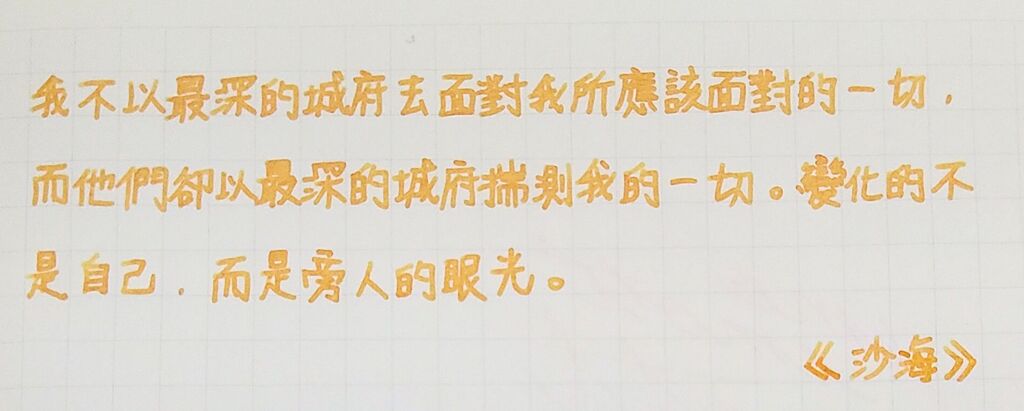 我不以最深的城府去面對我所應該面對的一切,
而他們卻以最深的城府揣測我的一切。變化的不
是自己,而是旁人的眼光。
《沙海》